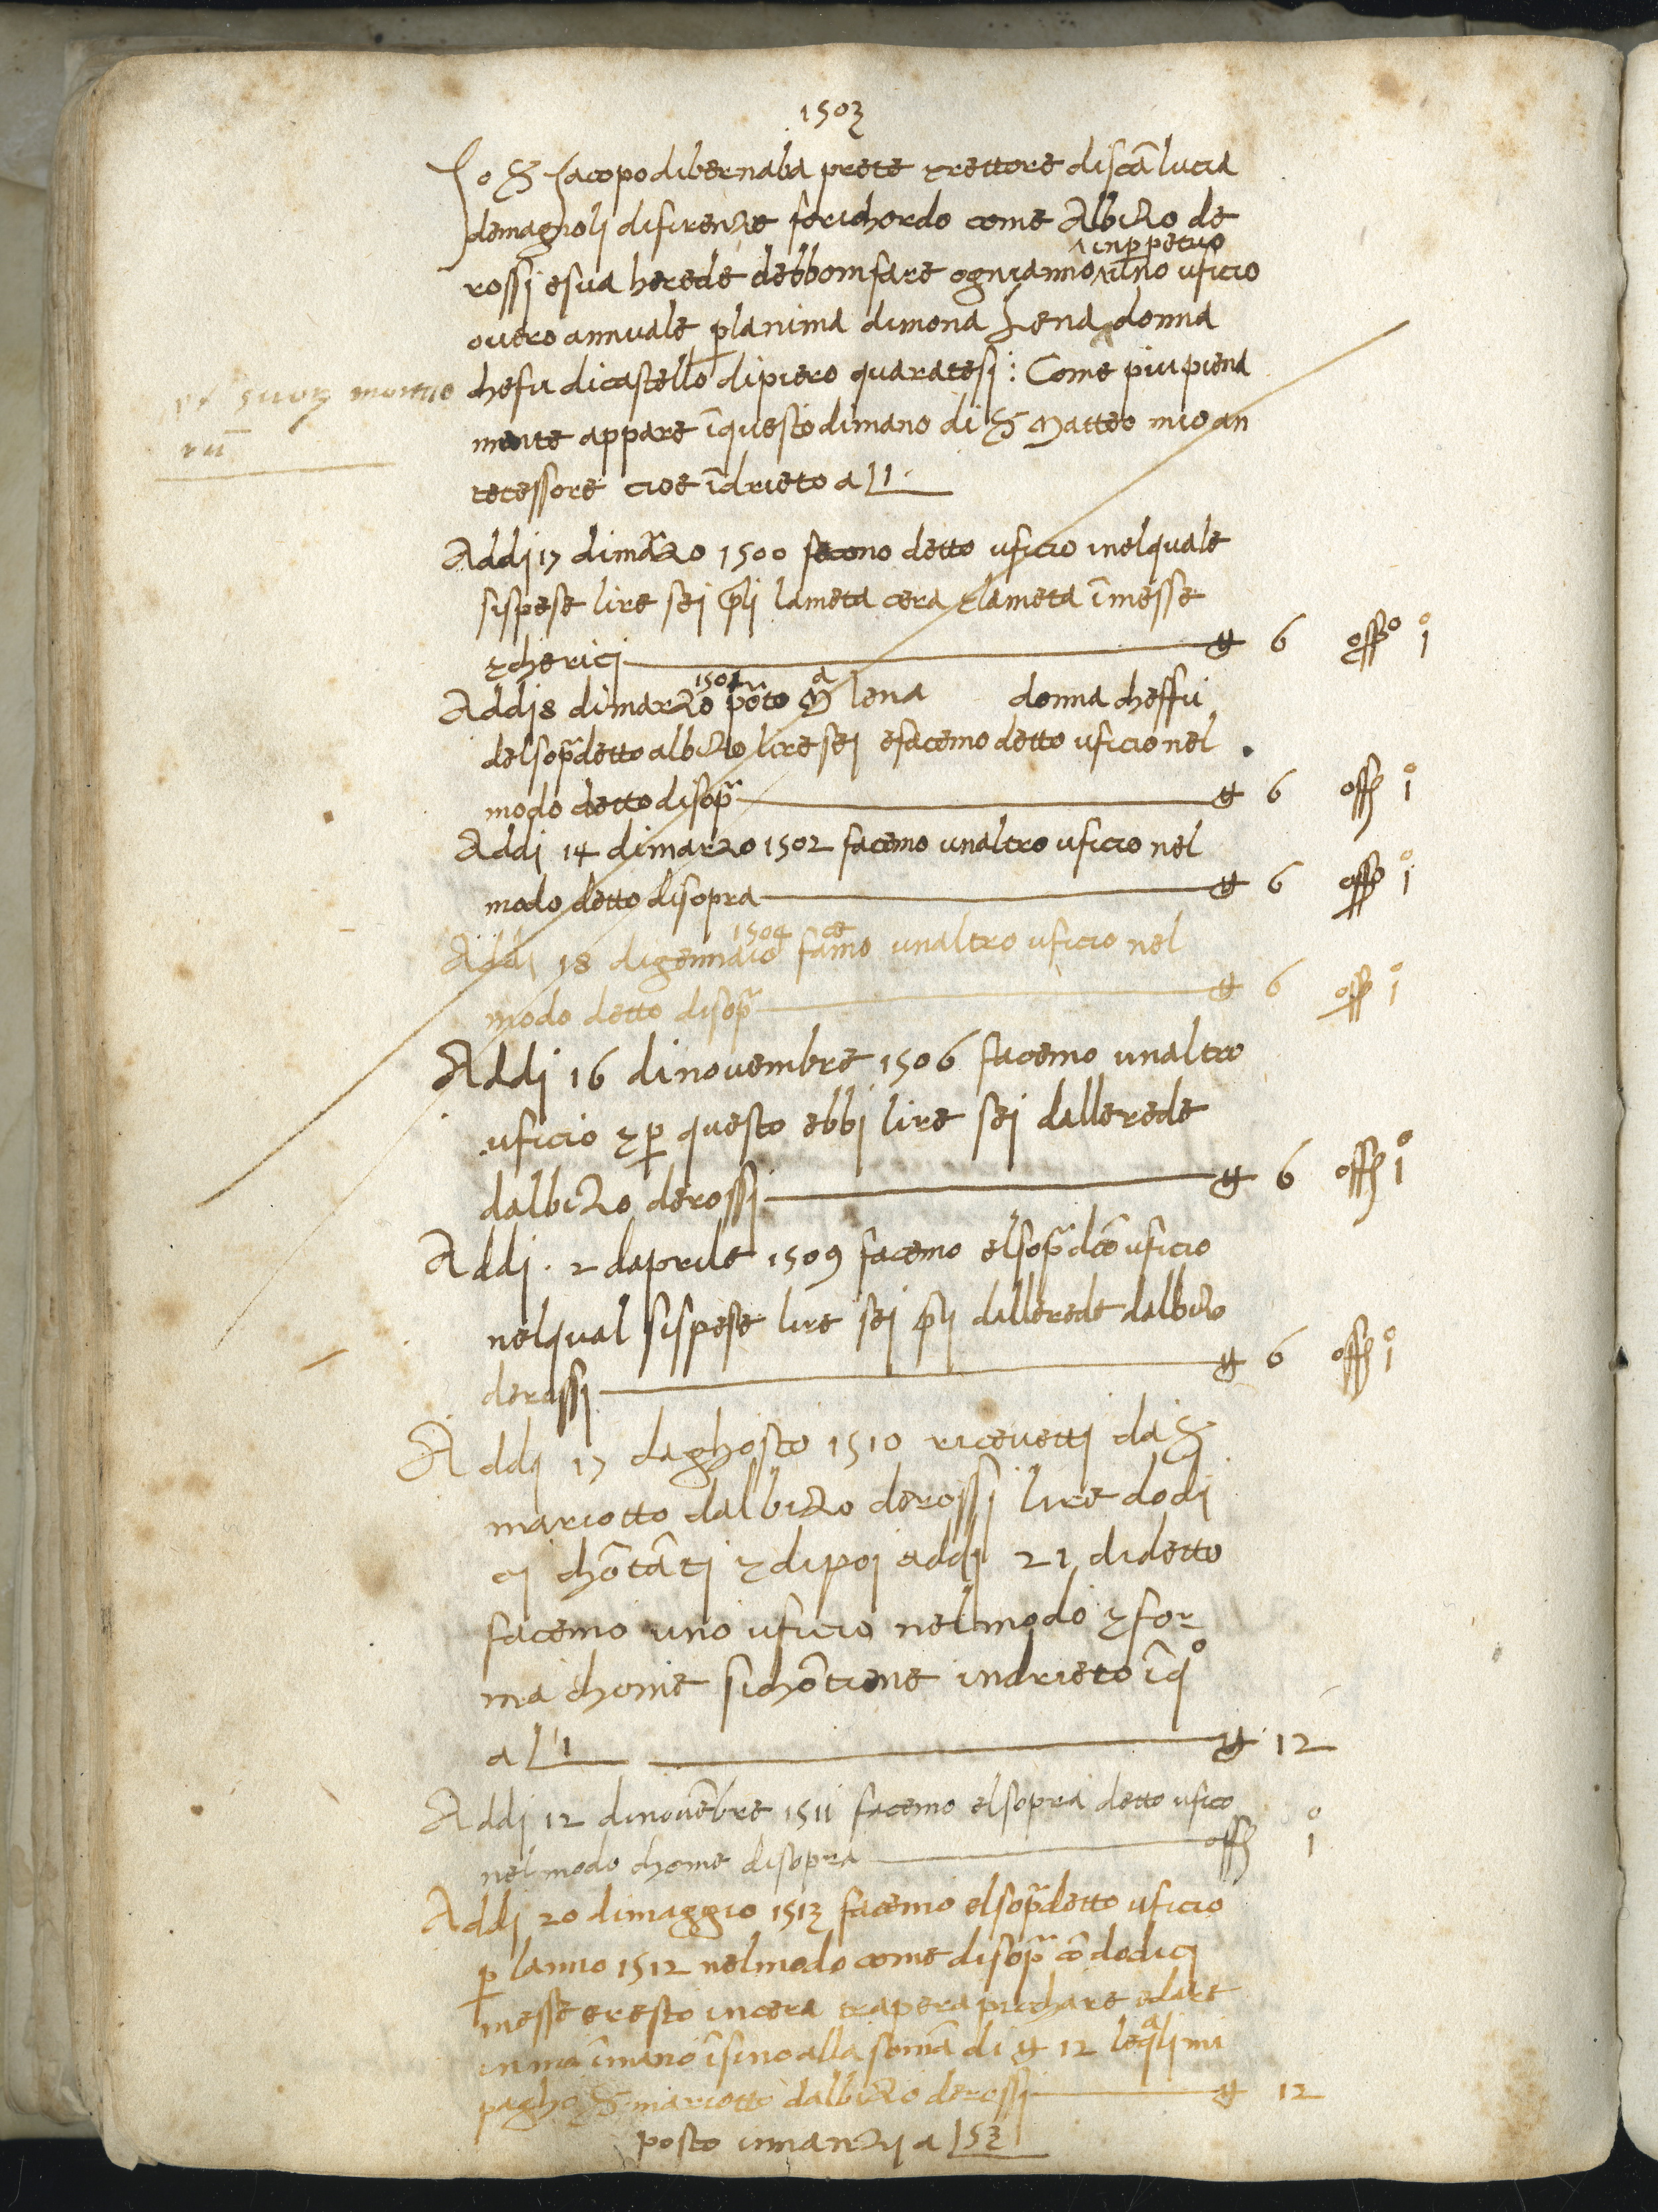 1503
Io S Iacopo di bernaba prete & rettore di scā lucia
de magnoli di firenze fo richordo come Albizo de
rossi e sua herede debbom fare ogni anno ^ in ꝑpetuo uno uficio
overo annuale ꝑ lanima di mona Lena donna
che fu di castello di piero quaratesi: Come piu piena
& suoꝝ mortuo
rū
mente appare ī questo di mano di S Matteo mio an
tecessore cioe īdrieto a L 1
Addj 17 di março 1500 fecono detto uficio inel quale
si spese lire sei pli la meta cera & la meta ī messe
& chericj ₶ 6 offo 1°
Addj 8 di marzo 1501 lena donna cheffu
del sopradetto albizo lire sei e facemo detto uficio nel
modo detto disopra ₶ 6 off 1°
Addj 14 di marzo 1502 facemo unaltro uficio nel
modo detto disopra ₶ 6 offo 1°
Addj 18 di gennaio 1504 facemo unaltro uficio nel
modo detto disopra ₶ 6 off 1°
Addj 16 di novembre 1506 facemo unaltro
uficio & ꝑ questo ebbi lire sei dallerede
dalbizo de rossj ₶ 6 off 1°
Addj . 2 daprile 1509 facemo el sopra dcō uficio
nel qual si spese lire sei pli dallerede dalbizo
de rossi ₶ 6 off 1°
Addj 17 daghosto 1510 ricevettj da S
mariotto dalbizo de rossj lire dodi
cj chōtātj & dipoi addj 21 di detto
facemo uno uficio nel modo & for-
ma chome si chōtiene indrieto ī q°
a L 1 ₶ 12
Addj 12 di novēbre 1511 facemo el sopra detto uficio
nel modo chome disopra off 1°
Addj 20 di maggio 1513 facemo el sopradetto uficio
ꝑ lanno 1512 nel modo come disopra cō dodicj
messe e resto in cera tra per apicchare e dare
in ma ī mano īsino alla soma di ₶ 12 le qalj mi
pagho S mariotto dalbizo de rossj ₶ 12
posto innanzj a L 53